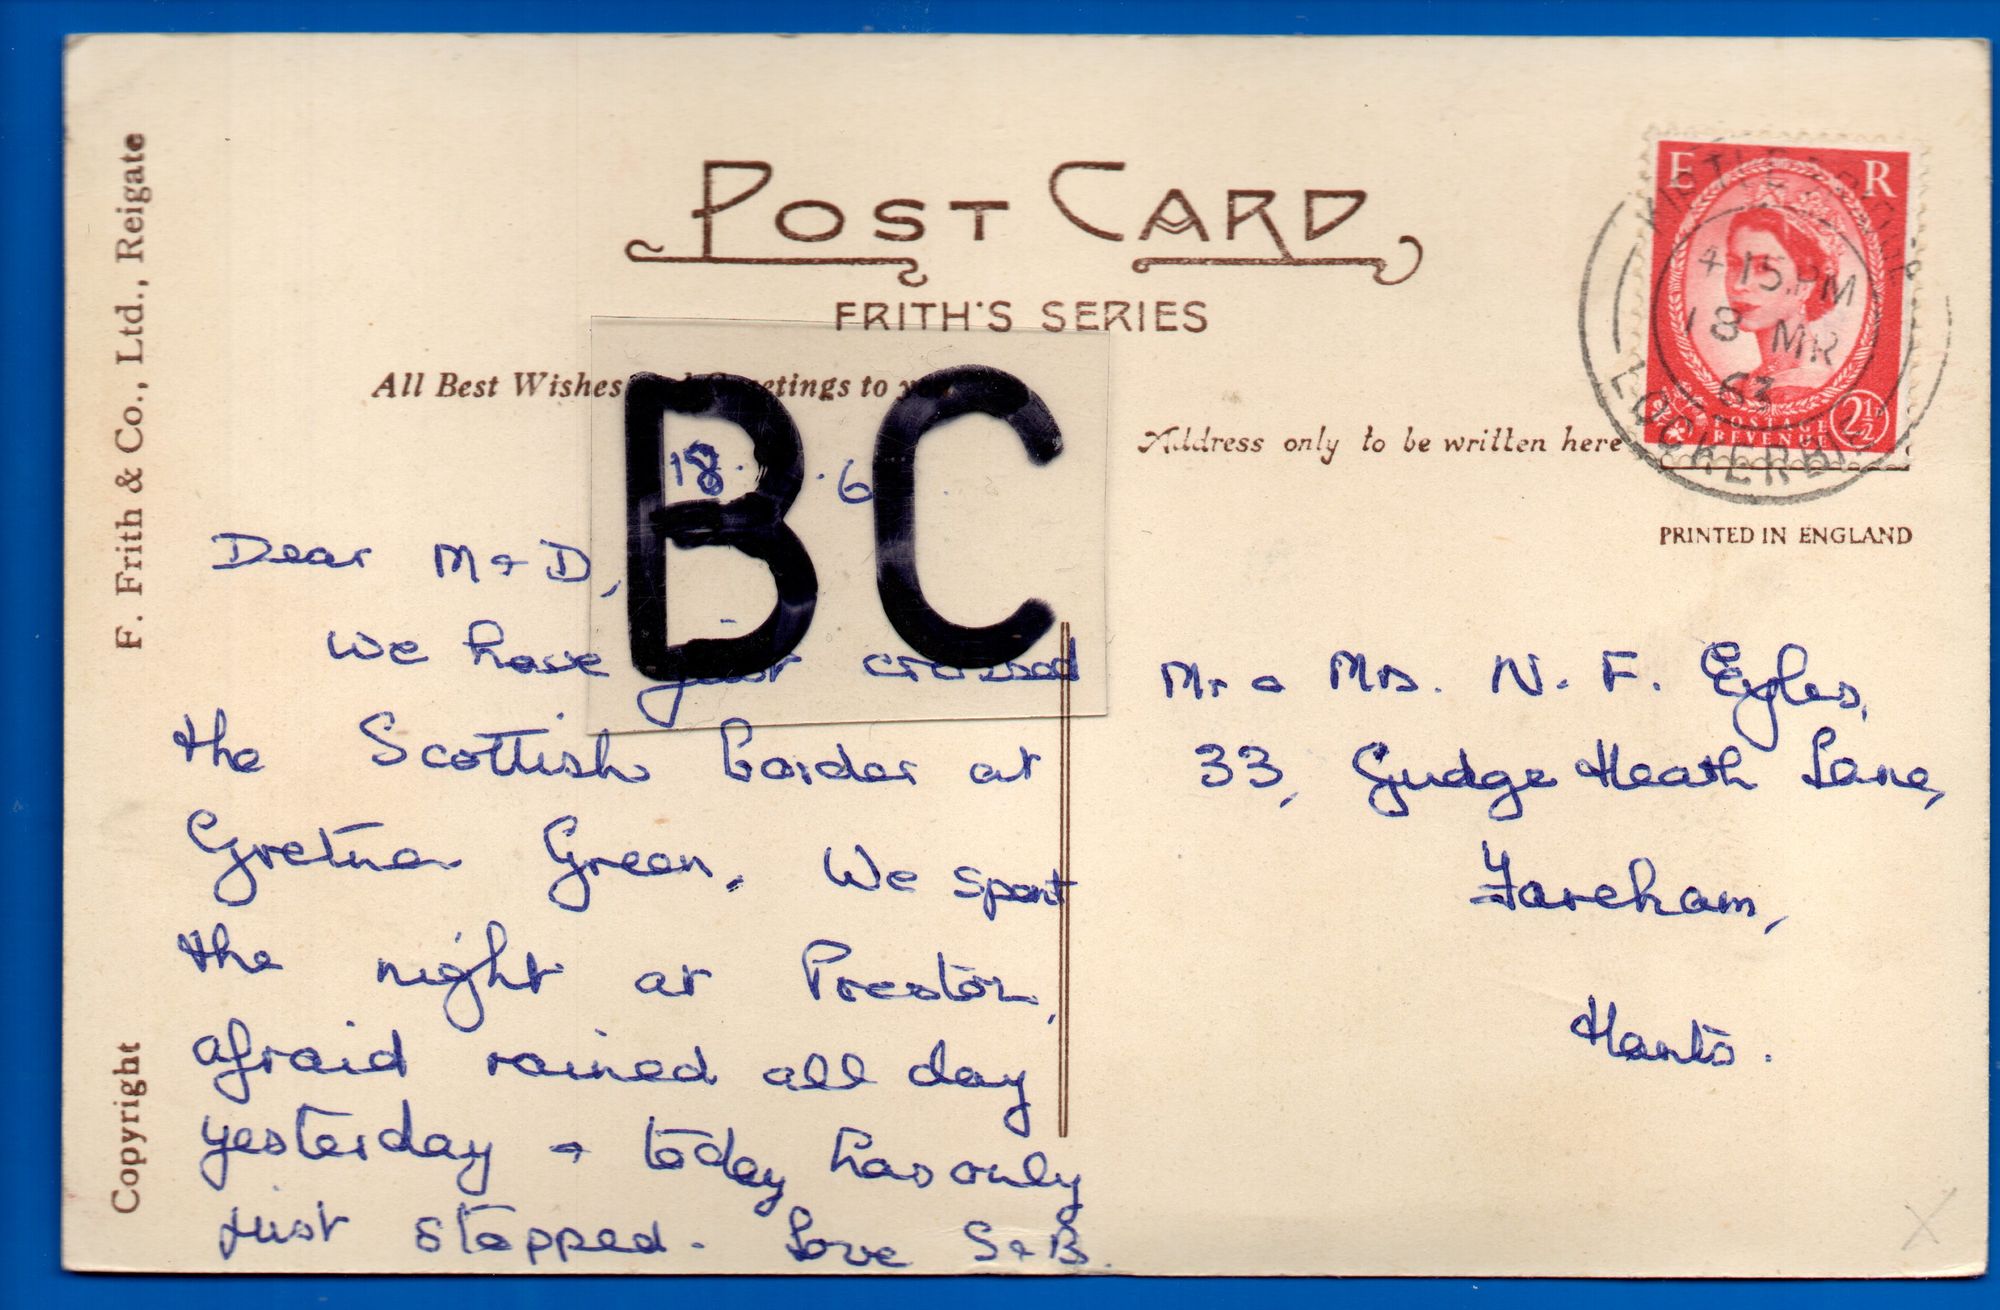 POST CARD
FRITH'S SERIES
All Best Wishes
BC
18. .6
Dear M & D,
We have just crossed
the Scottish border at
Gretna Green. We spent
the night at Preston,
afraid rained all day
yesterday & today has only
just stopped. Love S & B.
Address only to be written here
PRINTED IN ENGLAND
Mr & Mrs. N. F. Eyles,
33, Gudge Heath Lane,
Fareham,
Hants.
E R
POSTAGE
REVENUE
2½
4 15.PM
18 MR
63
LOCKERBIE
F. Frith & Co., Ltd., Reigate
Copyright